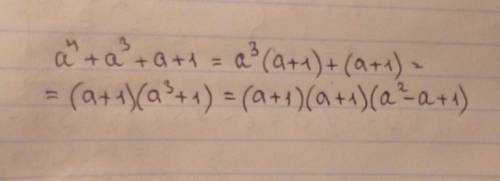 a⁴ + a³ + a + 1 = a³(a+1) + (a+1) =
= (a+1)(a³+1) = (a+1)(a+1)(a²-a+1)